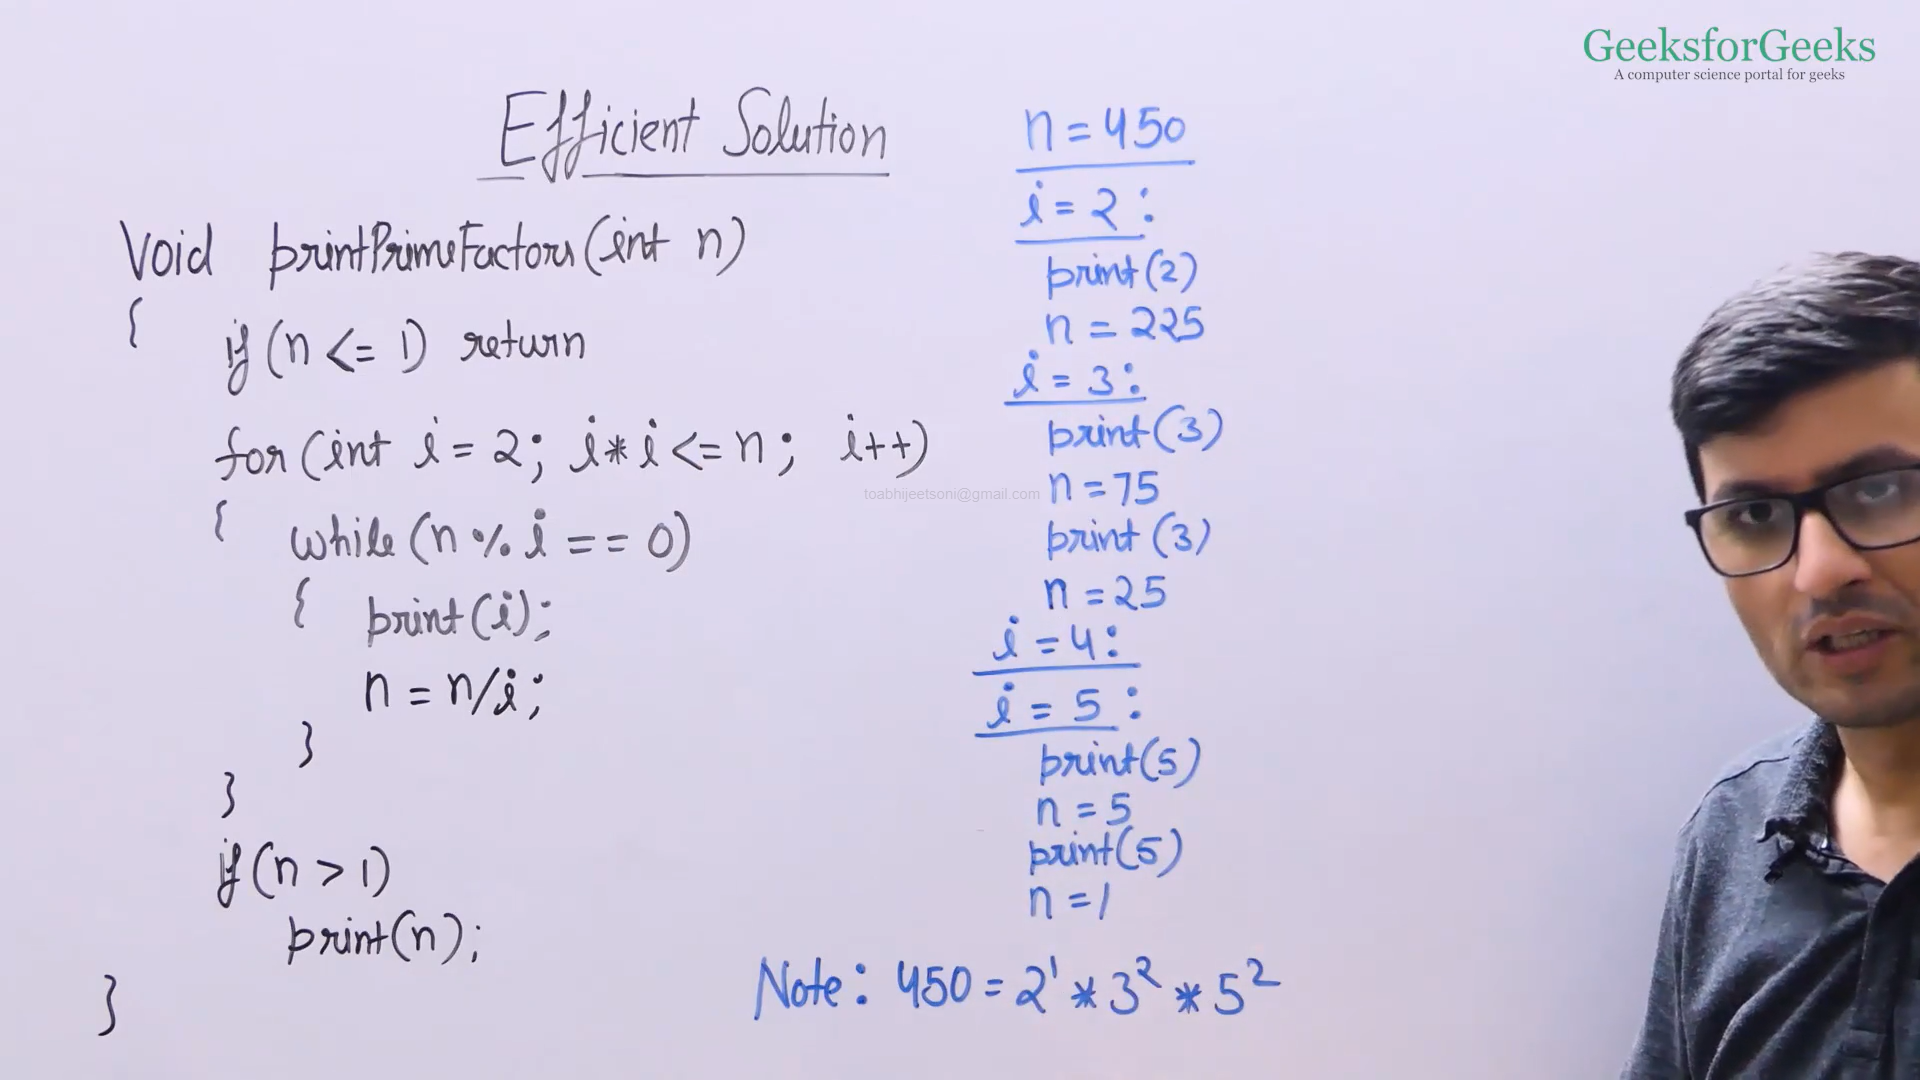 GeeksforGeeks
A computer science portal for geeks
Efficient Solution
Void printPrimeFactors(int n)
{
if (n <= 1) return
for (int i = 2; i*i <= n; i++)
{
while (n % i == 0)
{ print(i);
n = n/i;
}
}
if (n > 1)
print(n);
}
toabhijeetsoni@gmail.com
n = 450
i = 2 :
print(2)
n = 225
i = 3 :
print(3)
n = 75
print (3)
n = 25
i = 4 :
i = 5 :
print(5)
n = 5
print(5)
n = 1
Note : 450 = 2¹ * 3² * 5²